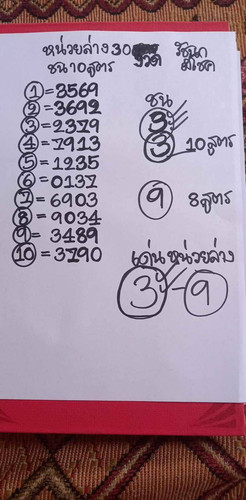 หน่วยล่าง 30 งวด
ชน 10 สูตร
รัชนก
มีโชค
1 = 3569
2 = 3692
3 = 2379
4 = 7913
5 = 1235
6 = 0137
7 = 6903
8 = 9034
9 = 3489
10 = 3790
ชน
3
3 10 สูตร
9 8 สูตร
เด่นหน่วยล่าง
3 - 9